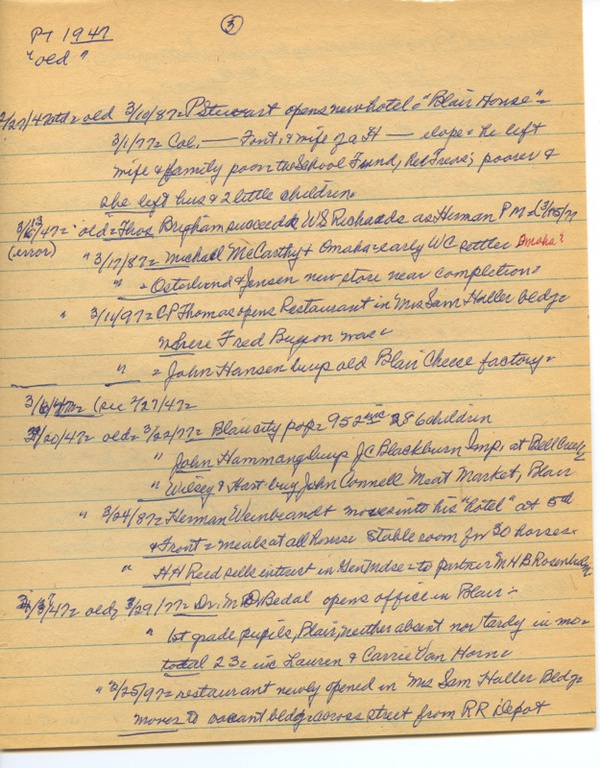 PT 1947 ③
"old"
2/27/47 old = 3/10/87 = P Stewart opens new hotel = "Blair House" =
3/1/77 = Col. — Font. & wife of a H — elope = he left
wife & family poor the School Fund, Treas; poorer &
she left hus & 2 little children.
3/13/47 = old = Thos Brigham succeeds WS Richards as Herman P M = (3/15/77
(error) " 3/17/87 = Michael McCarthy + Omaha = early WC settler Omaha?
" = Osterlund & Jensen new store near completion =
" 3/11/97 = CP Thomas opens Restaurant in Mrs Sam Haller bldg =
where Fred was =
" = John Hansen buys old Blair Cheese factory =
3/6/47 = (see 2/27/47 =
3/20/47 = old = 3/22/77 = Blair city pop = 952 inc 286 children
" John Hammang buys JC Blackburn Imp, at Bell Creek
" Wilsey & Hart buy John Connell Meat Market, Blair
" 3/24/87 = Herman Weinbrandt moves into his "hotel" at 5th
& Front = meals at all hours stable room for 30 horses.
" HH Reed sells interest in Gen Mdse = to partner MHB Rosenbalm
3/47 = old, 3/29/77 = Dr. M D Bedal opens office in Blair =
" 1st grade pupils, Blair, neither absent nor tardy in mo =
total 23 = inc Lauren & Carrie Van Horn =
" 3/25/97 = restaurant newly opened in Mrs Sam Haller Bldg =
moves to vacant bldg across street from RR Depot